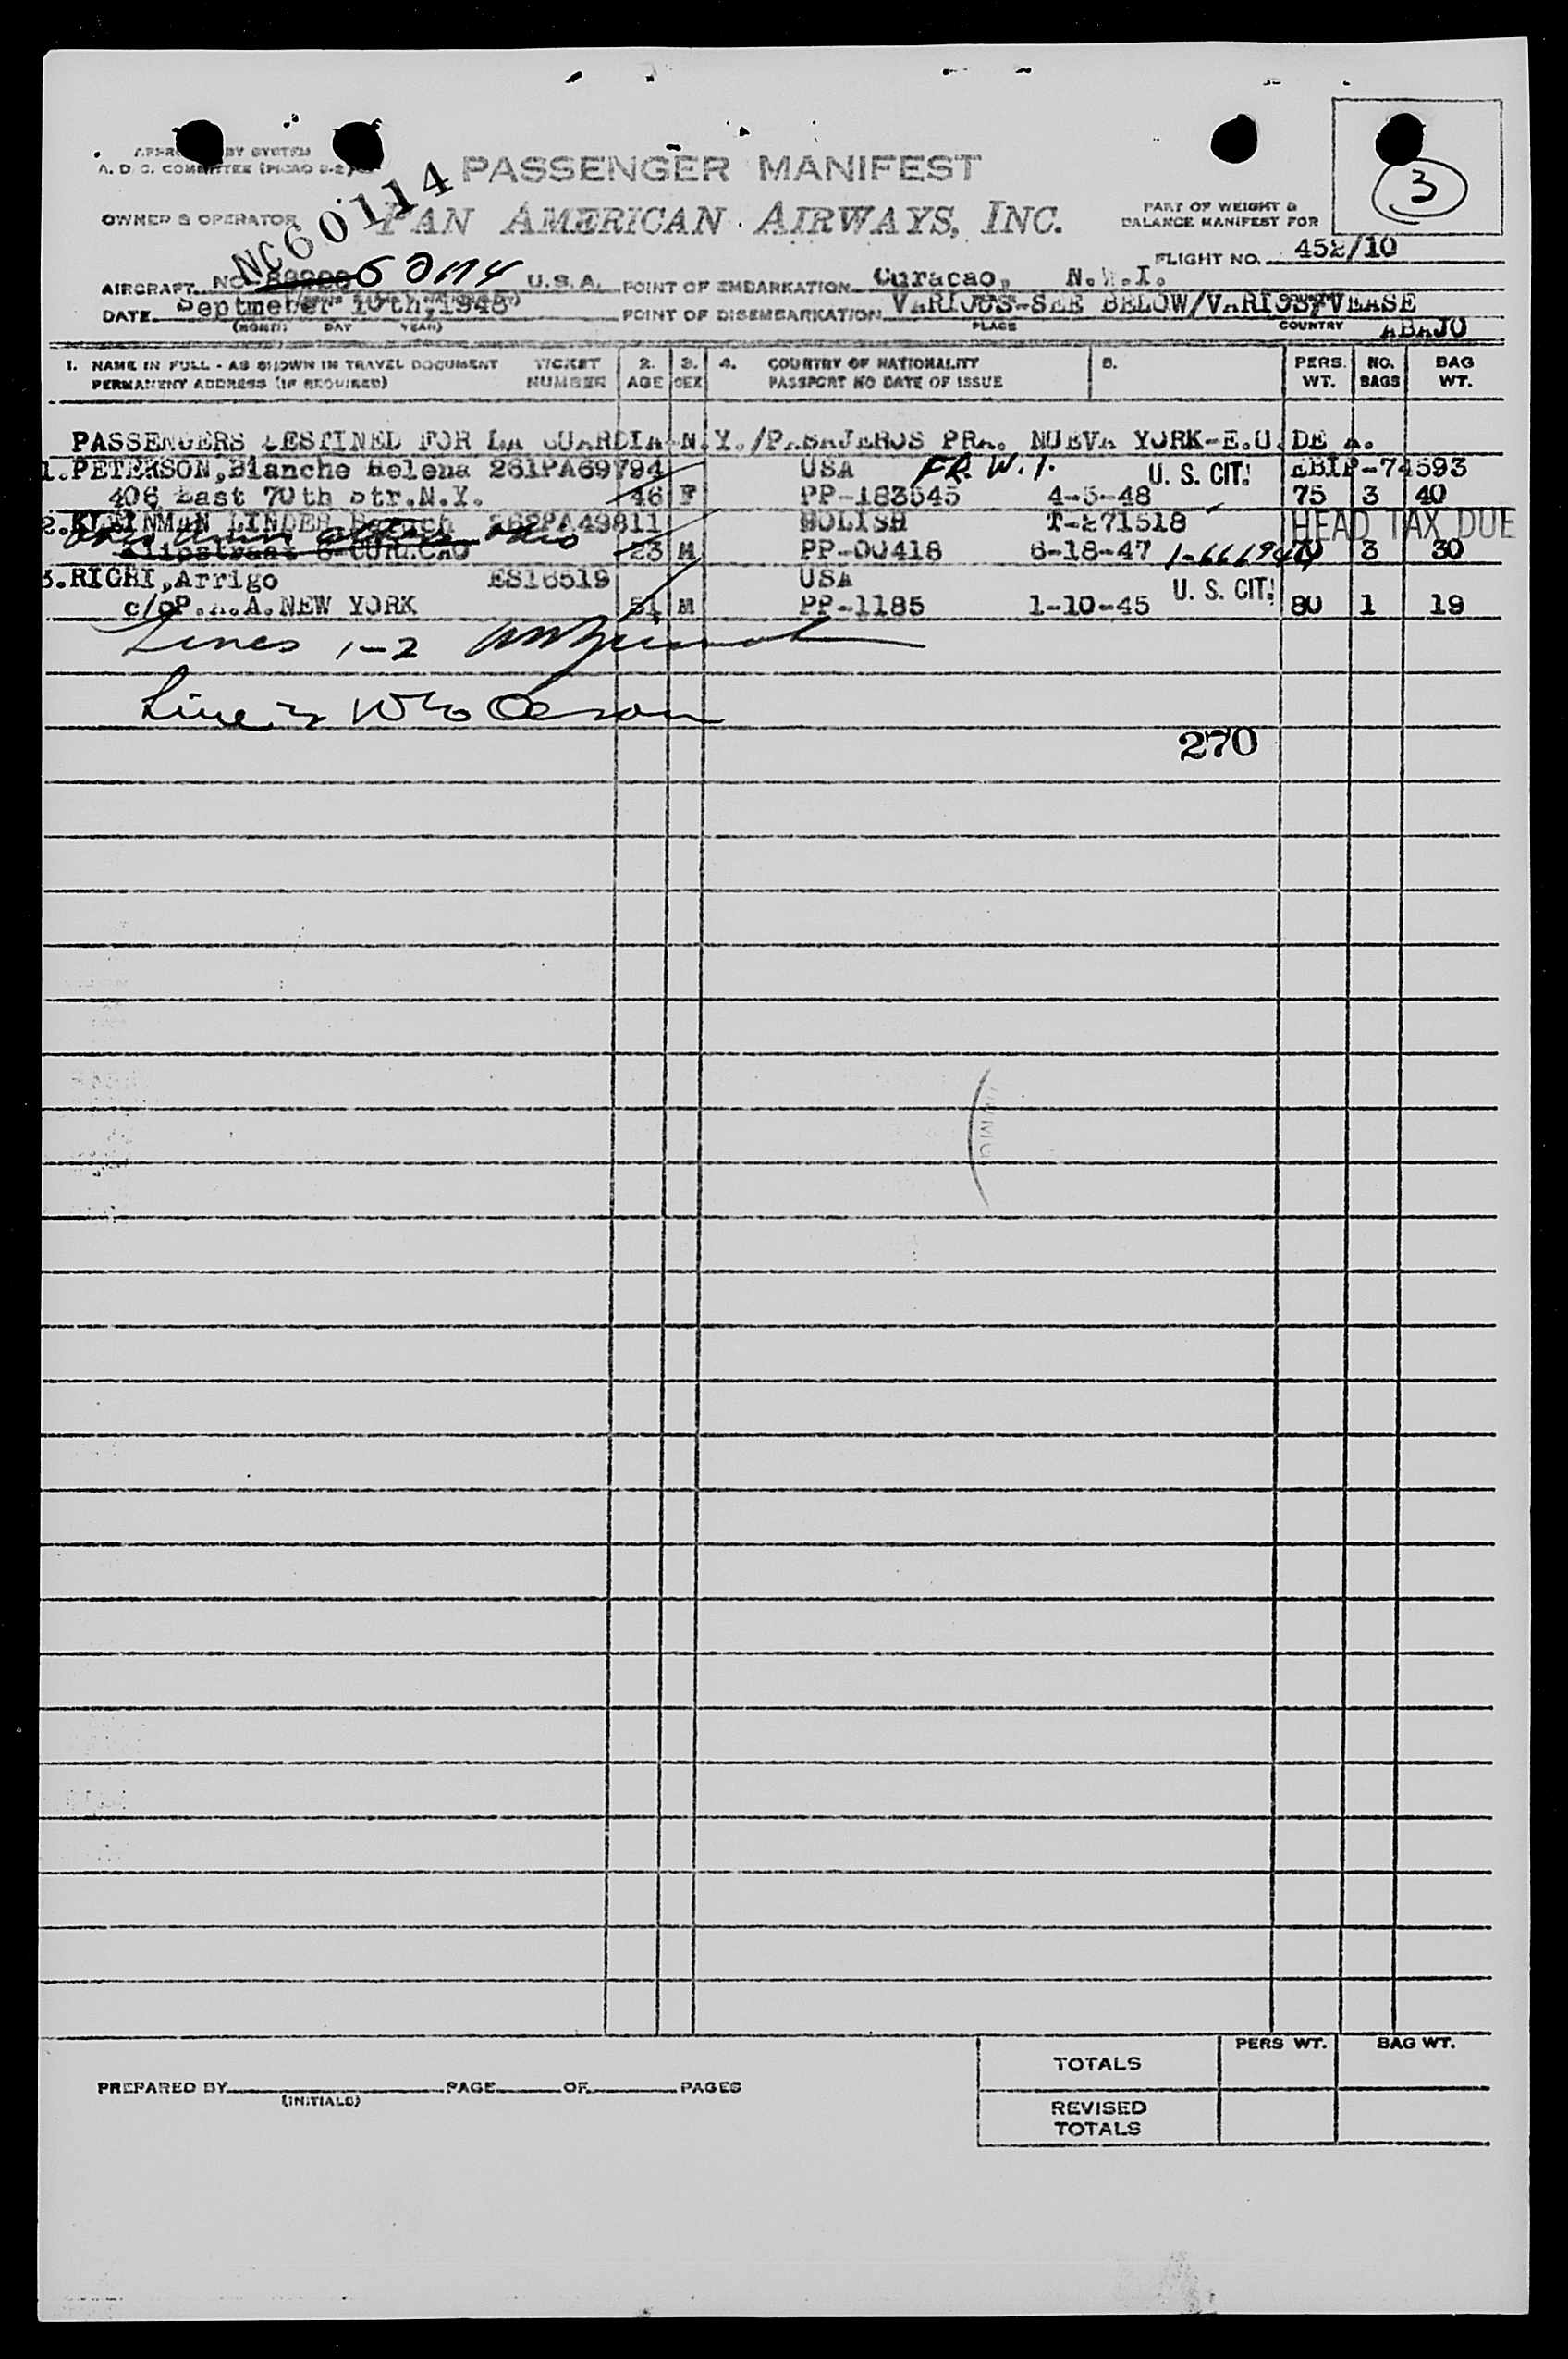 BY SYSTEM
A. D. C. COMMITTEE (PICAO S-2)
PASSENGER MANIFEST
3
NC60114
OWNER & OPERATOR PAN AMERICAN AIRWAYS, INC.
PART OF WEIGHT &
BALANCE MANIFEST FOR
FLIGHT NO. 452/10
AIRCRAFT NC 60114 U.S.A. POINT OF EMBARKATION Curacao, N.W.I.
DATE Septmeber 10th,1948 POINT OF DISEMBARKATION VARIOUS-SEE BELOW/VARIOS/VEASE
ABAJO
(MONTH DAY YEAR) PLACE COUNTRY
1. NAME IN FULL - AS SHOWN IN TRAVEL DOCUMENT TICKET 2. 3. 4. COUNTRY OF NATIONALITY 5. PERS. NO. BAG
PERMANENT ADDRESS (IF REQUIRED) NUMBER AGE SEX PASSPORT NO DATE OF ISSUE WT. BAGS WT.
PASSENGERS DESTINED FOR LA GUARDIA-N.Y./PASAJEROS PRA. NUEVA YORK-E.U.DE A.
1.PETERSON,Blanche Helena 261PA69794 USA FR. W.I. U. S. CIT. 74593
406 East 70th Str.N.Y. 46 F PP-183545 4-5-48 75 3 40
2.KLEINMAN LINDER 262PA49811 POLISH T-271518 HEAD TAX DUE
Klipstraat 6-CURACAO 23 M PP-00418 6-18-47 3 30
3.RIGHI,Arrigo ES16519 USA U. S. CIT.
c/oP.A.A.NEW YORK 51 M PP-1185 1-10-45 80 1 19
Lines 1-2
Line 3
270
TOTALS PERS WT. BAG WT.
PREPARED BY PAGE OF PAGES
(INITIALS)
REVISED
TOTALS